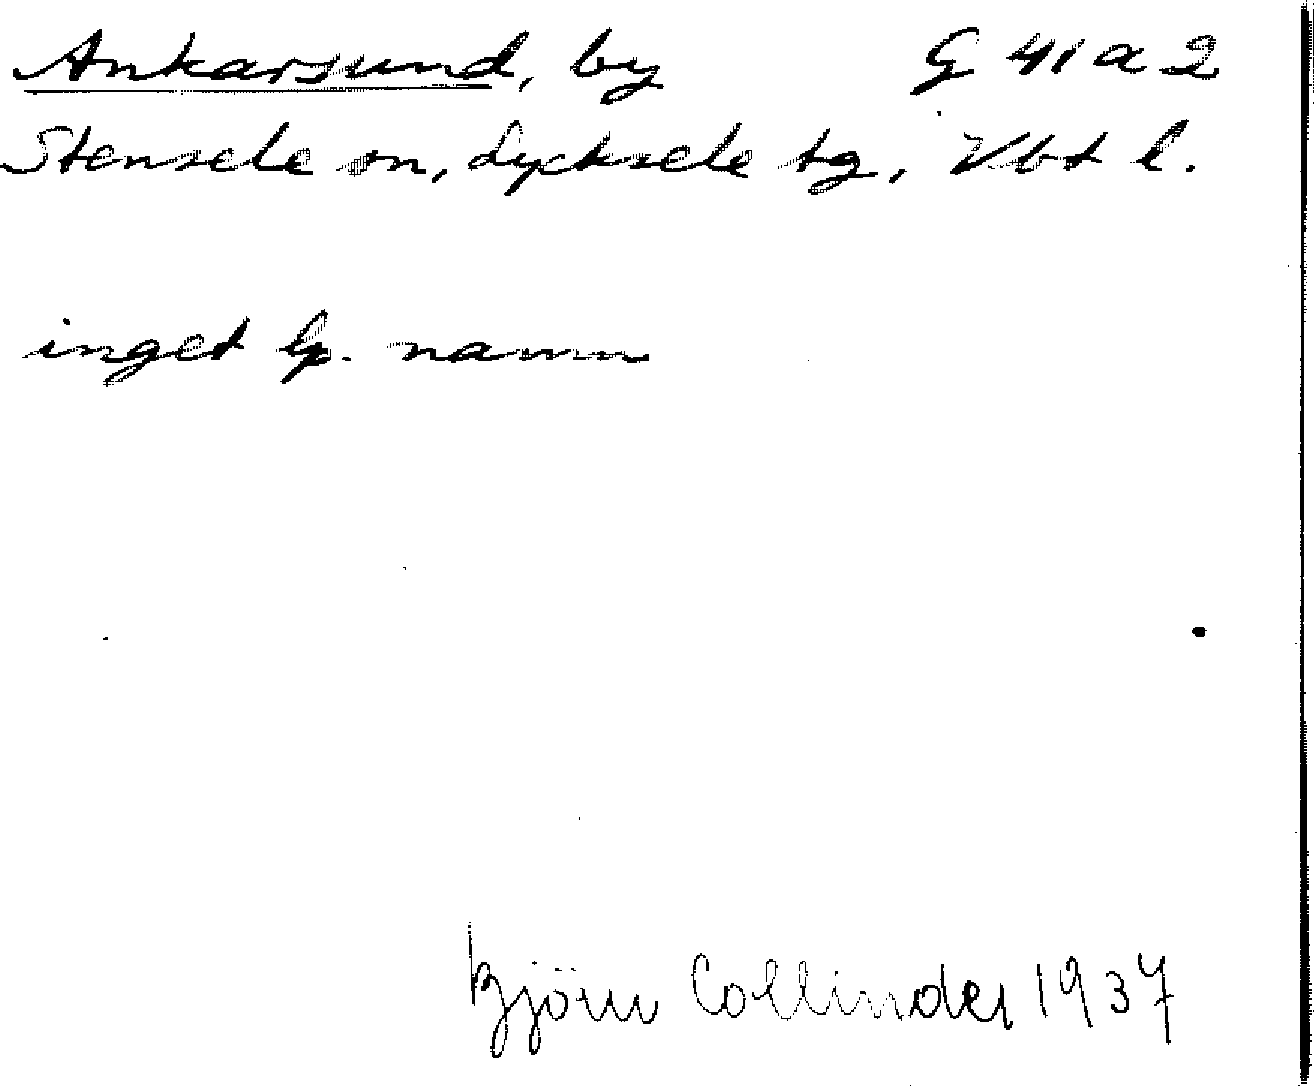 Ankarsund, by G 41 a 2
Stensele sn, Lycksele tg, Vbt l.
inget lp. namn
Björn Collinder 1937